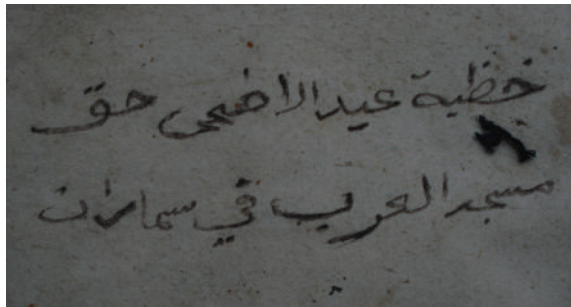 خطبة عيد الاضحى حق
مسجد العرب في سماران